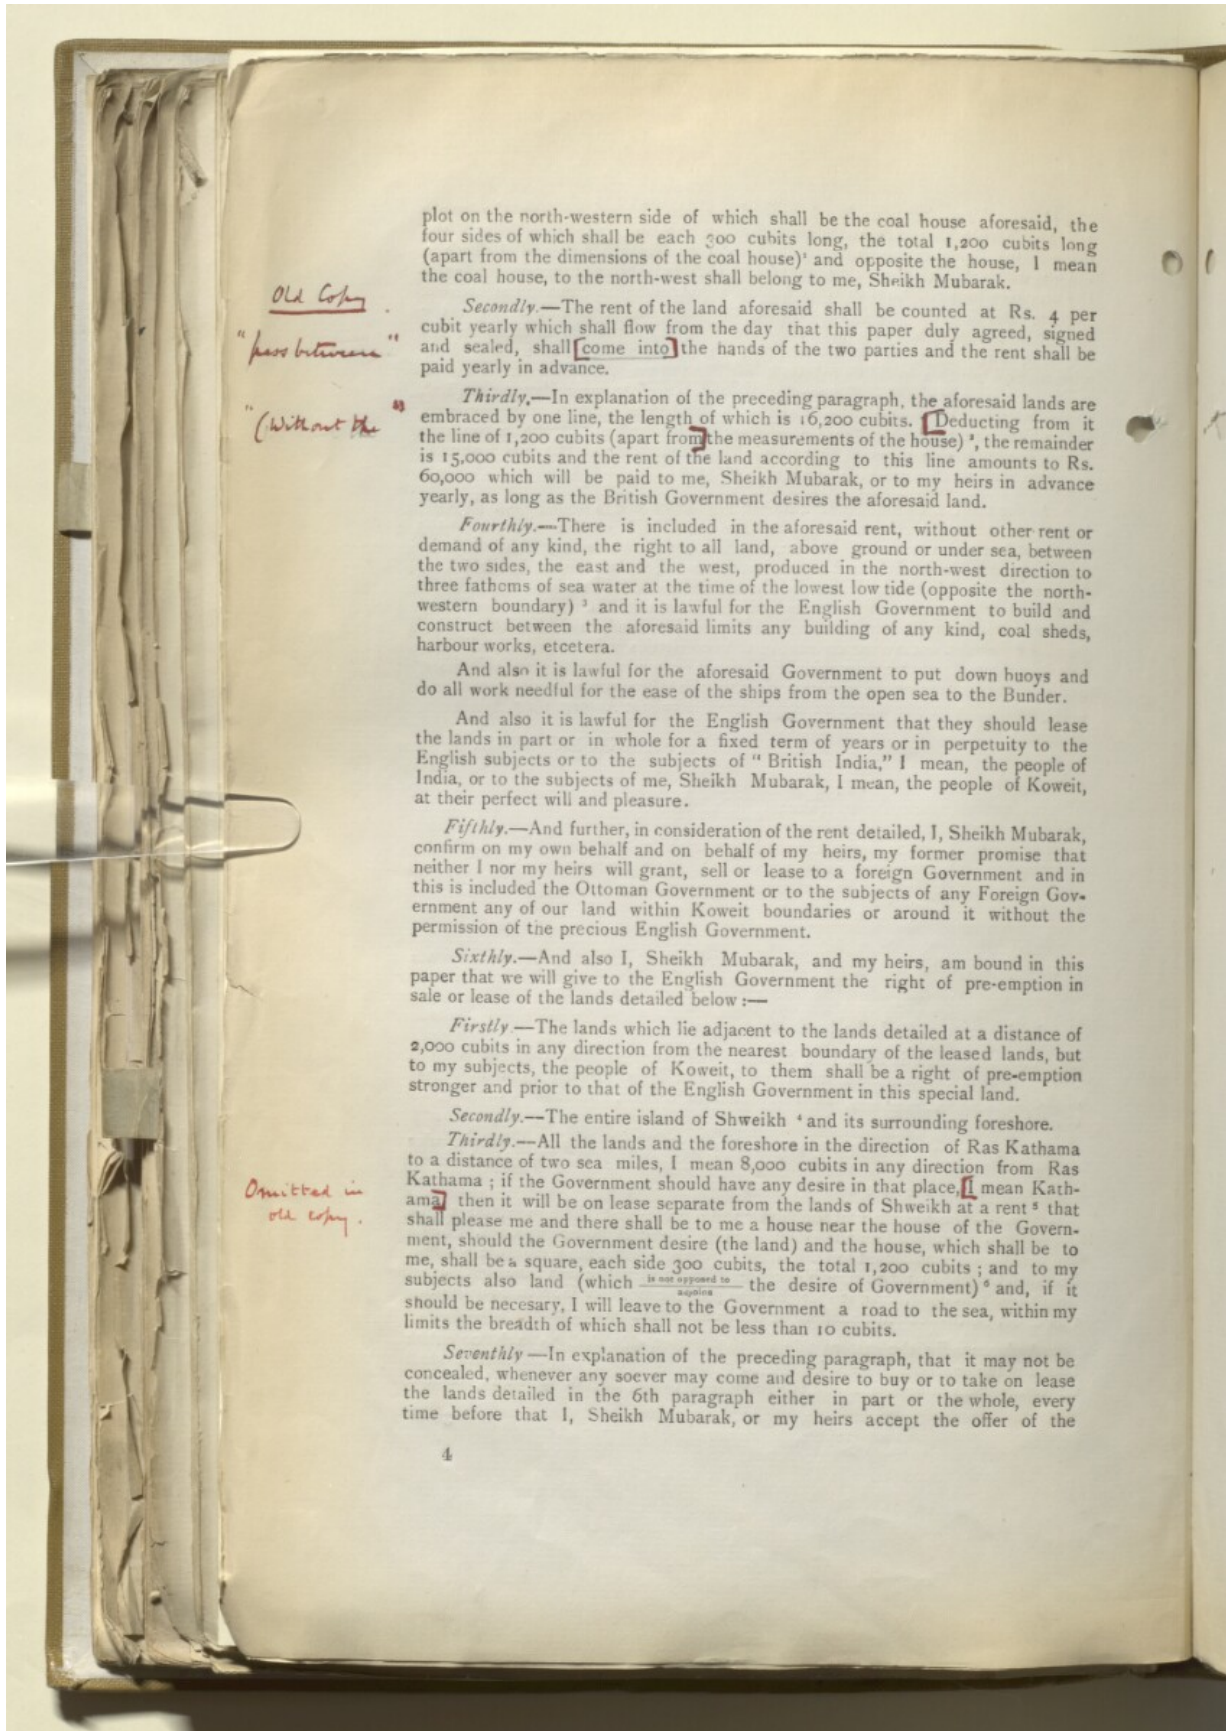 plot on the north-western side of which shall be the coal house aforesaid, the
four sides of which shall be each 300 cubits long, the total 1,200 cubits long
(apart from the dimensions of the coal house)¹ and opposite the house, I mean
the coal house, to the north-west shall belong to me, Sheikh Mubarak.
Old Copy.
Secondly.—The rent of the land aforesaid shall be counted at Rs. 4 per
cubit yearly which shall flow from the day that this paper duly agreed, signed
"pass between"
and sealed, shall [come into] the hands of the two parties and the rent shall be
paid yearly in advance.
Thirdly.—In explanation of the preceding paragraph, the aforesaid lands are
"(Without the"
embraced by one line, the length of which is 16,200 cubits. [Deducting from it
the line of 1,200 cubits (apart from] the measurements of the house) ², the remainder
is 15,000 cubits and the rent of the land according to this line amounts to Rs.
60,000 which will be paid to me, Sheikh Mubarak, or to my heirs in advance
yearly, as long as the British Government desires the aforesaid land.
Fourthly.—There is included in the aforesaid rent, without other rent or
demand of any kind, the right to all land, above ground or under sea, between
the two sides, the east and the west, produced in the north-west direction to
three fathoms of sea water at the time of the lowest low tide (opposite the north-
western boundary) ³ and it is lawful for the English Government to build and
construct between the aforesaid limits any building of any kind, coal sheds,
harbour works, etcetera.
And also it is lawful for the aforesaid Government to put down buoys and
do all work needful for the ease of the ships from the open sea to the Bunder.
And also it is lawful for the English Government that they should lease
the lands in part or in whole for a fixed term of years or in perpetuity to the
English subjects or to the subjects of "British India," I mean, the people of
India, or to the subjects of me, Sheikh Mubarak, I mean, the people of Koweit,
at their perfect will and pleasure.
Fifthly.—And further, in consideration of the rent detailed, I, Sheikh Mubarak,
confirm on my own behalf and on behalf of my heirs, my former promise that
neither I nor my heirs will grant, sell or lease to a foreign Government and in
this is included the Ottoman Government or to the subjects of any Foreign Gov-
ernment any of our land within Koweit boundaries or around it without the
permission of the precious English Government.
Sixthly.—And also I, Sheikh Mubarak, and my heirs, am bound in this
paper that we will give to the English Government the right of pre-emption in
sale or lease of the lands detailed below :—
Firstly.—The lands which lie adjacent to the lands detailed at a distance of
2,000 cubits in any direction from the nearest boundary of the leased lands, but
to my subjects, the people of Koweit, to them shall be a right of pre-emption
stronger and prior to that of the English Government in this special land.
Secondly.—The entire island of Shweikh ⁴ and its surrounding foreshore.
Thirdly.—All the lands and the foreshore in the direction of Ras Kathama
to a distance of two sea miles, I mean 8,000 cubits in any direction from Ras
Omitted in
Kathama ; if the Government should have any desire in that place, [I mean Kath-
old copy.
ama] then it will be on lease separate from the lands of Shweikh at a rent ⁵ that
shall please me and there shall be to me a house near the house of the Govern-
ment, should the Government desire (the land) and the house, which shall be to
me, shall be a square, each side 300 cubits, the total 1,200 cubits ; and to my
subjects also land (which is not opposed to / adjoins the desire of Government) ⁶ and, if it
should be necesary, I will leave to the Government a road to the sea, within my
limits the breadth of which shall not be less than 10 cubits.
Seventhly—In explanation of the preceding paragraph, that it may not be
concealed, whenever any soever may come and desire to buy or to take on lease
the lands detailed in the 6th paragraph either in part or the whole, every
time before that I, Sheikh Mubarak, or my heirs accept the offer of the
4